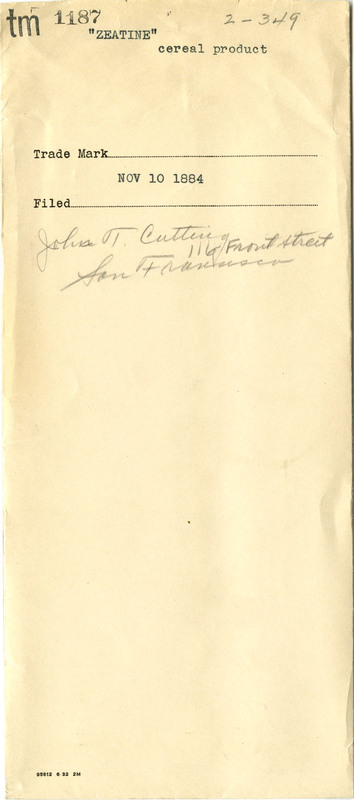 tm 1187 2-349
"ZEATINE"
cereal product
Trade Mark
NOV 10 1884
Filed
John T. Cutting
116 Front Street
San Fransisco
95812 6 32 2M